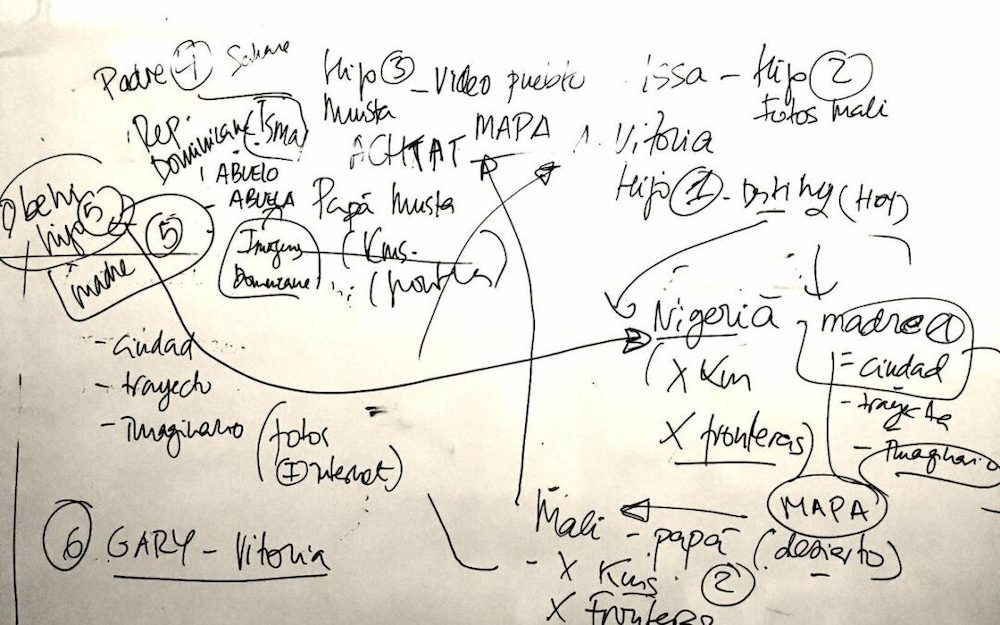 Padre 4
Hijo 3 - video pueblo
Musta
issa - Hijo 2
Fotos Mali
Rep.
Dominicana (Isma)
ACHTAT MAPA
1. Vitoria
Hijo 1 - Destiny (Hoy)
ABUELO
- ABUELA
Papá Musta
(Kms.
hijo 5
5
madre
Imagenes
Dominicana
Nigeria
- madre 1
= ciudad
- trayecto
- Imaginario
(X Km
X fronteras)
- ciudad
- trayecto
- Imaginario
(fotos
Internet)
MAPA
(desierto)
Mali - papá
2
- X Kms
X fronteras
6 GARY - Vitoria